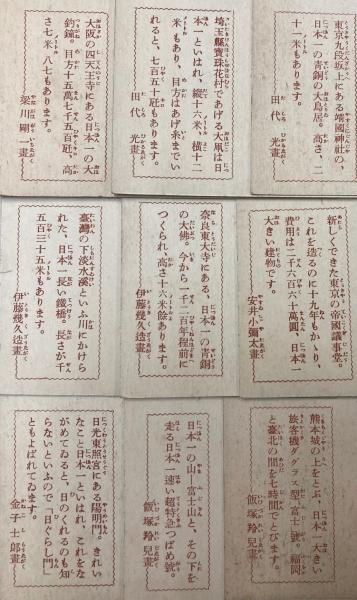 東京九段坂上にある靖國神社の、
日本一の青銅の大鳥居。高さ、二
十一米もあります。
田代光畫
埼玉縣寶珠花村であげる大凧は日
本一といはれ、縱十六米、横十二
米もあり、目方はあげ糸までい
れると、七百五十瓩もあります。
田代光畫
大阪の四天王寺にある日本一の大
釣鐘。目方十五萬七千五百瓩、高
さ七米八七もあります。
梁川剛一畫
新しくできた東京の帝國議事堂。
これを造るのに十九年もかゝり、
費用は二千六百六十萬圓、日本一
大きい建物です。
安井小彌太畫
奈良東大寺にある、日本一の青銅
の大佛。今から一千二百年程前に
つくられ高さ十六米餘あります。
伊藤幾久造畫
臺灣の下淡水溪といふ川にかけら
れた、日本一長い鐵橋。長さが千
五百三十五米もあります。
伊藤幾久造畫
熊本城の上をとぶ、日本一大きい
旅客機ダグラス型「富士」號。福岡
と臺北の間を七時間でとびます。
飯塚羚兒畫
日本一の山―富士山と、その下を
走る日本一速い超特急つばめ號。
飯塚羚兒畫
日光東照宮にある陽明門。きれい
なこと日本一といはれ、これをな
がめてゐると、日のくれるのも知
らないといふので「日ぐらし門」
ともよばれてゐます。
金子士郎畫